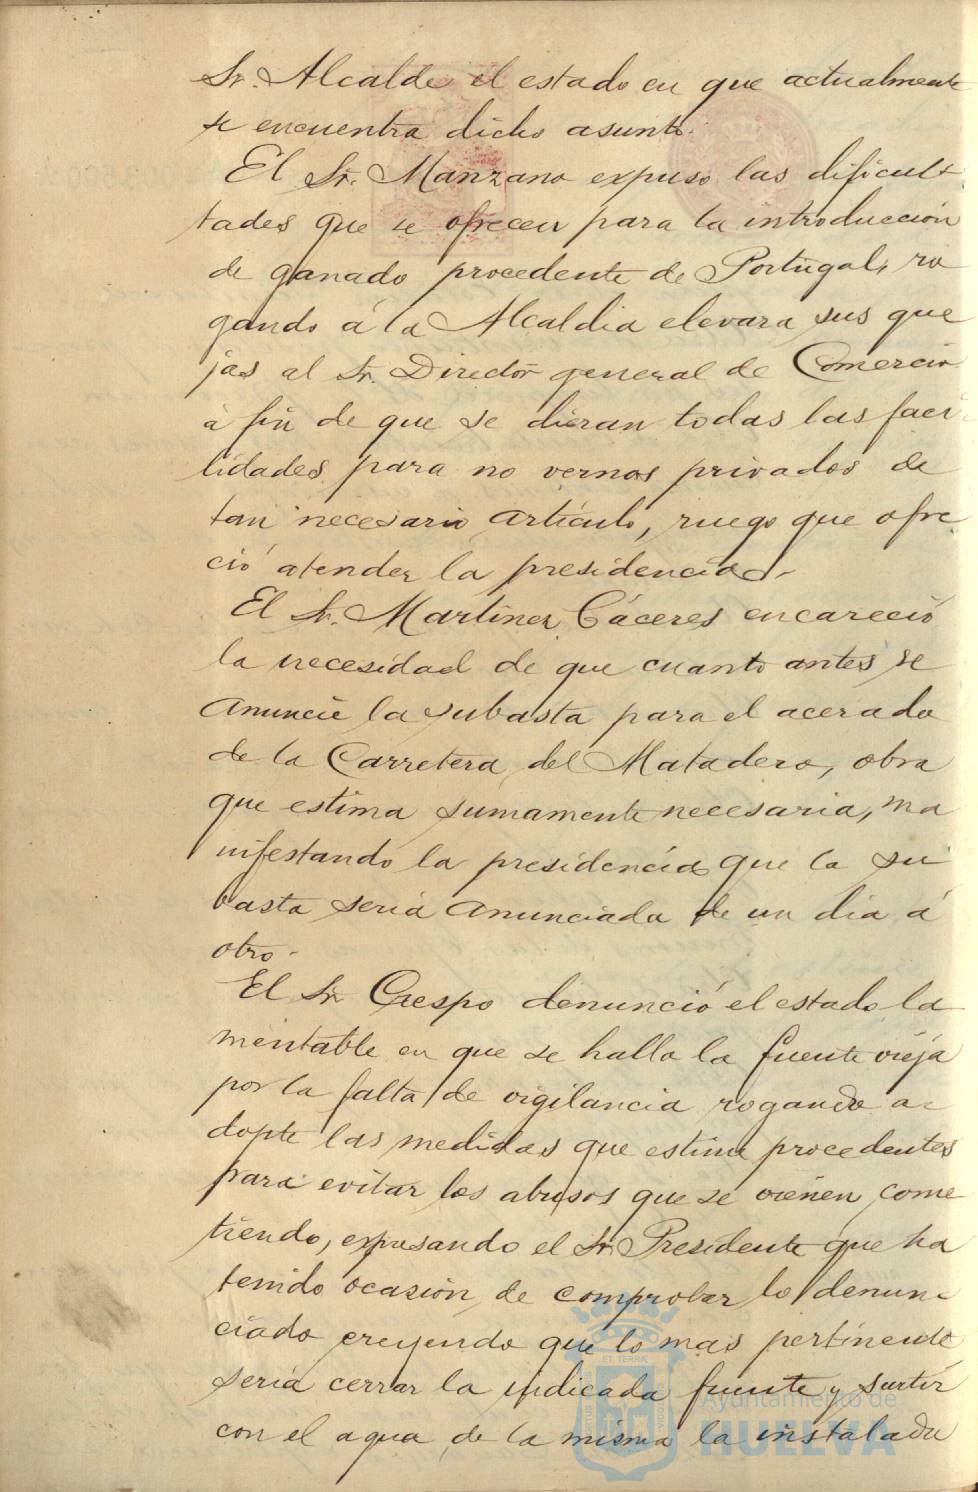 Sr. Alcalde el estado en que actualmente
se encuentra dicho asunto.
El Sr. Manzano expuso las dificul-
tades que se ofrecen para la introducción
de ganado procedente de Portugal, ro
gando á la Alcaldia elevara sus que
jas al Sr. Director general de Comercio
á fin de que se dieran todas las faci-
lidades para no vernos privados de
tan necesario artículo, ruego que ofre
ció atender la presidencia.-
El Sr. Martinez Cáceres encareció
la necesidad de que cuanto antes se
anuncie la subasta para el acerado
de la Carretera del Matadero, obra
que estima sumamente necesaria, ma
nifestando la presidencia que la su
basta seria anunciada de un dia á
otro.-
El Sr. Crespo denunció el estado la
mentable en que se halla la fuente vieja
por la falta de vigilancia rogando a-
dopte las medidas que estime procedentes
para evitar los abusos que se vienen come
tiendo, expresando el Sr. Presidente que ha
tenido ocasión de comprobar lo denun-
ciado creyendo que lo mas pertinente
seria cerrar la indicada fuente y surtir
con el agua de la misma la instalada
Ayuntamiento de
HUELVA